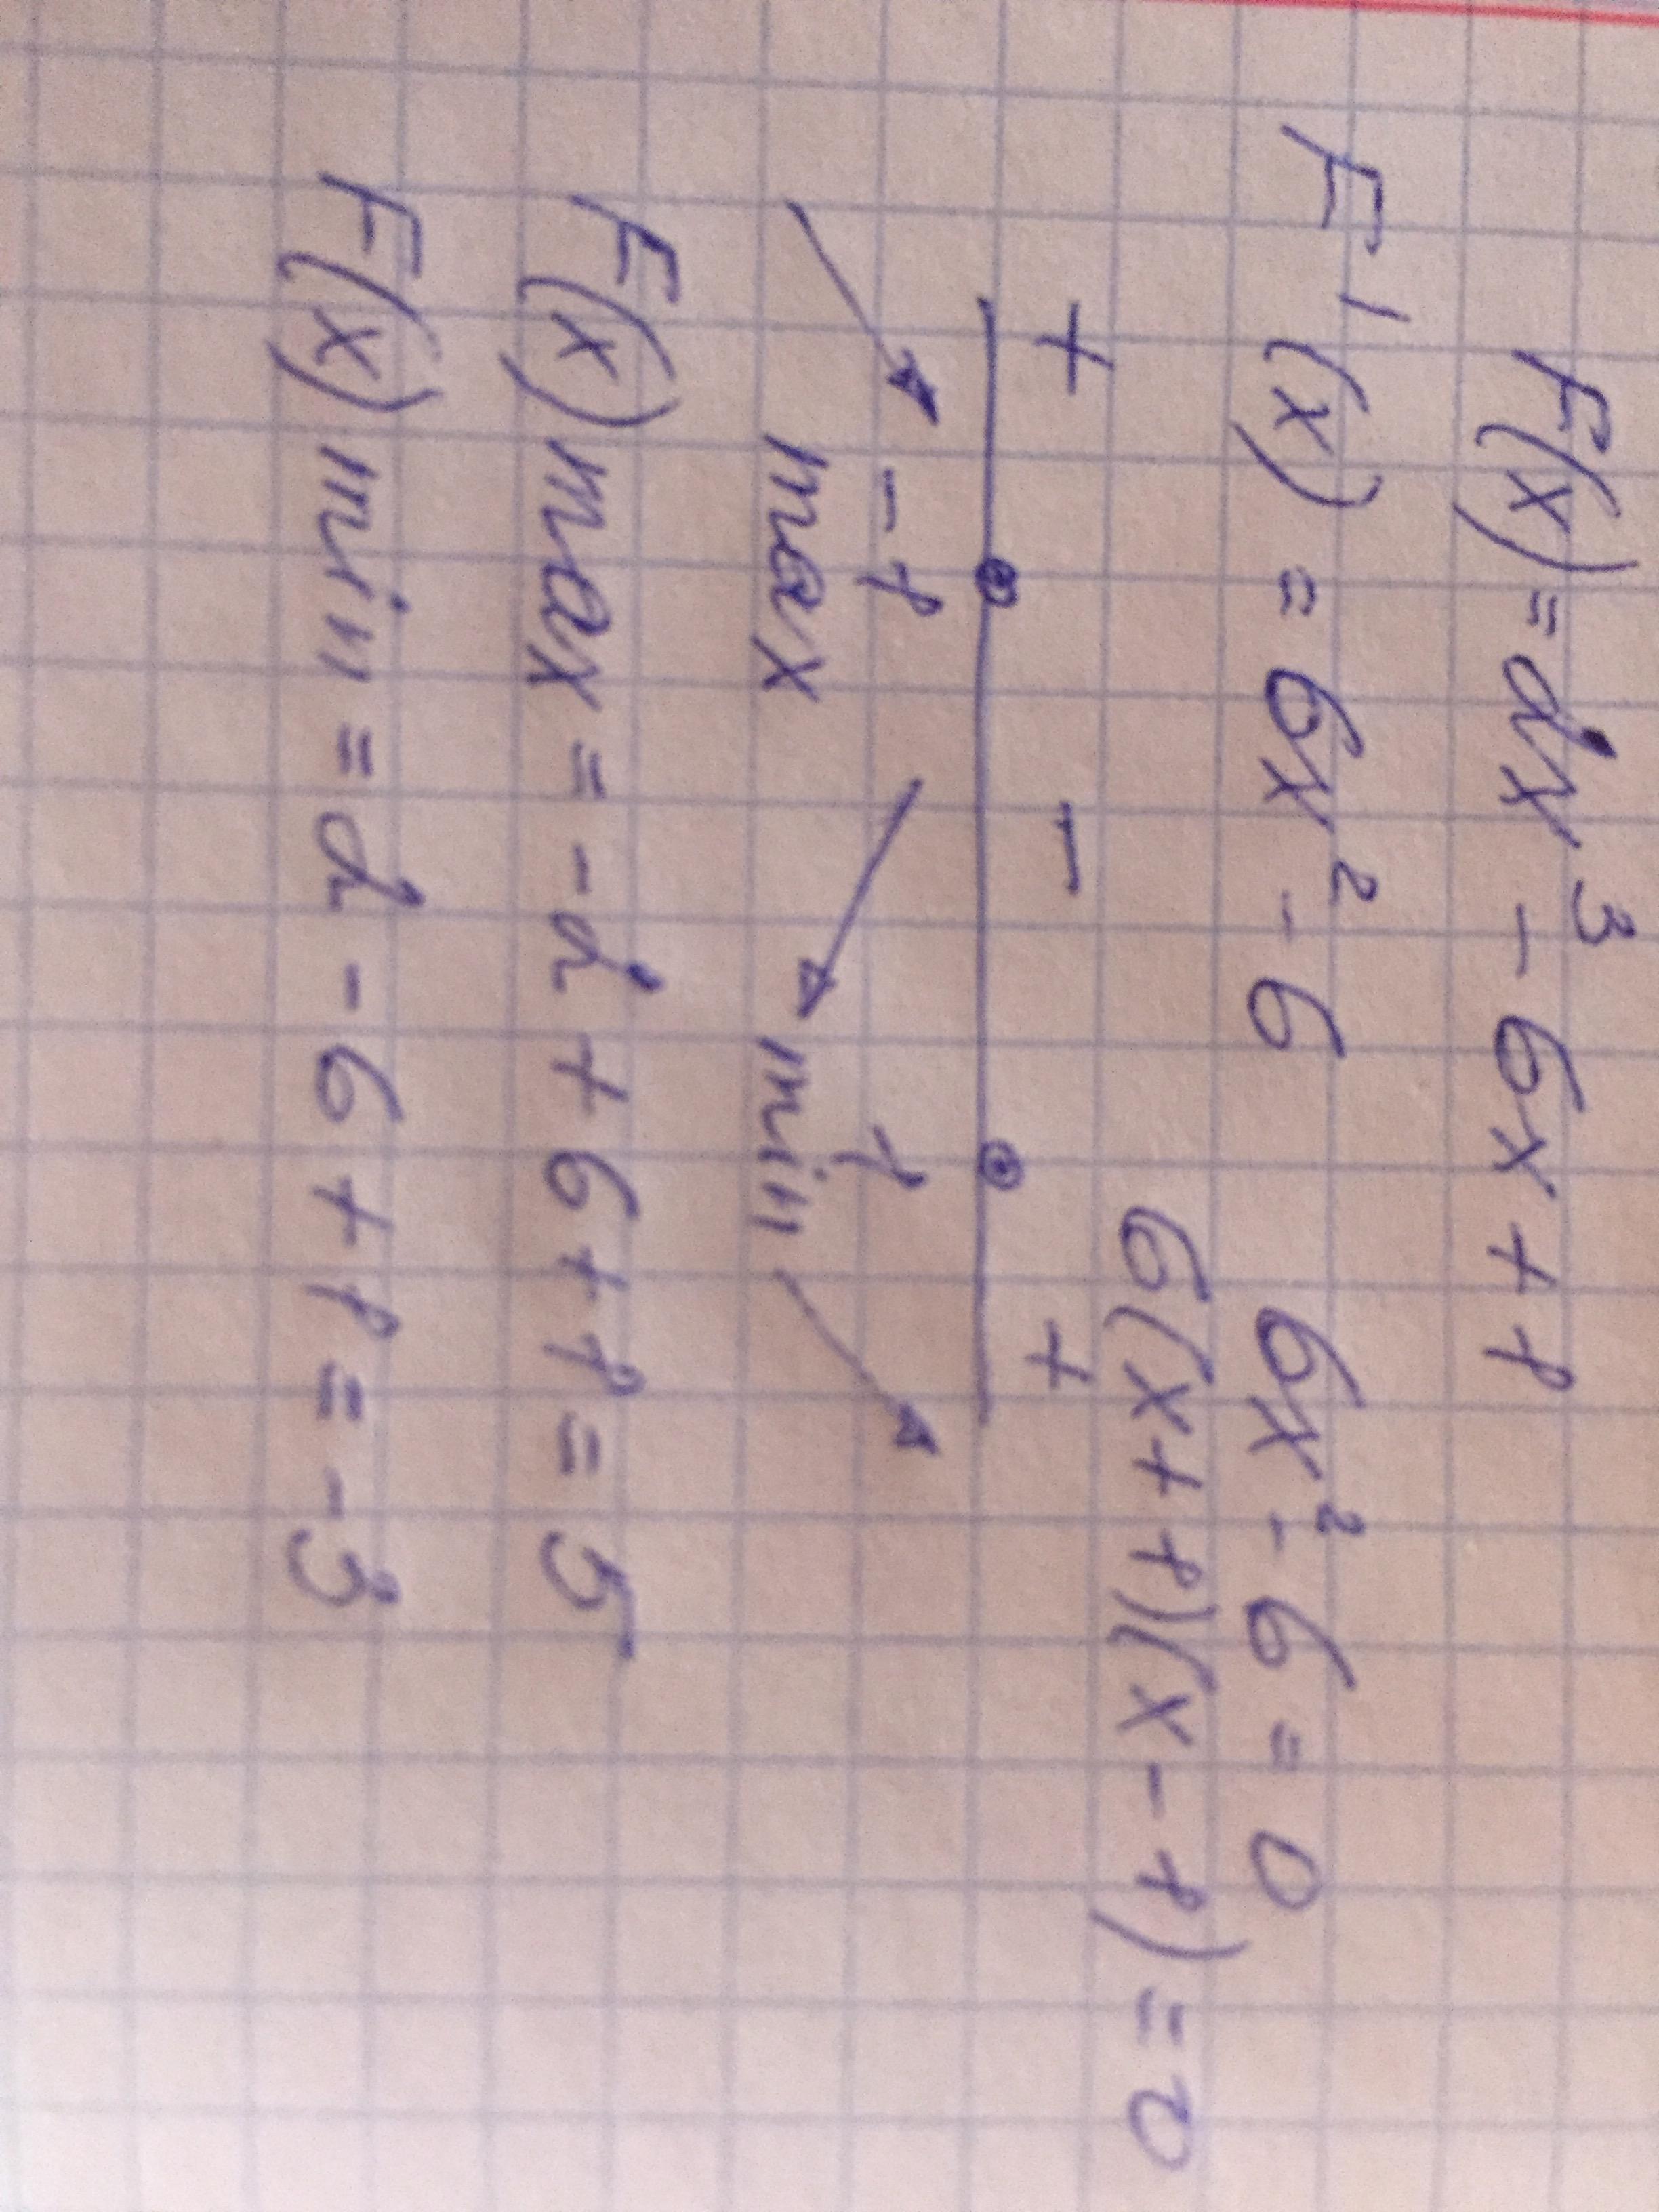 F(x) = 2x³ - 6x + 1
F'(x) = 6x² - 6    6x² - 6 = 0
6(x+1)(x-1) = 0
+ - +
-1 1
max min
F(x) max = -2 + 6 + 1 = 5
F(x) min = 2 - 6 + 1 = -3